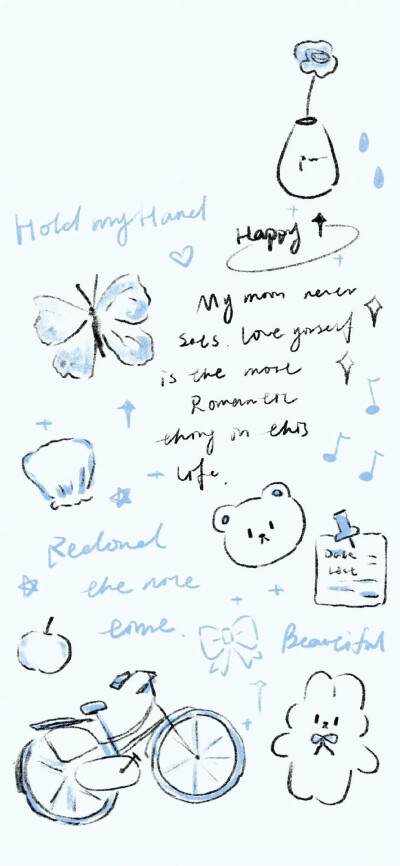 Hold my Hand
Happy
My moon never
sets. Love yourself
is the most
Romantic
thing in this
life.
Date
List
the
come.
Beautiful